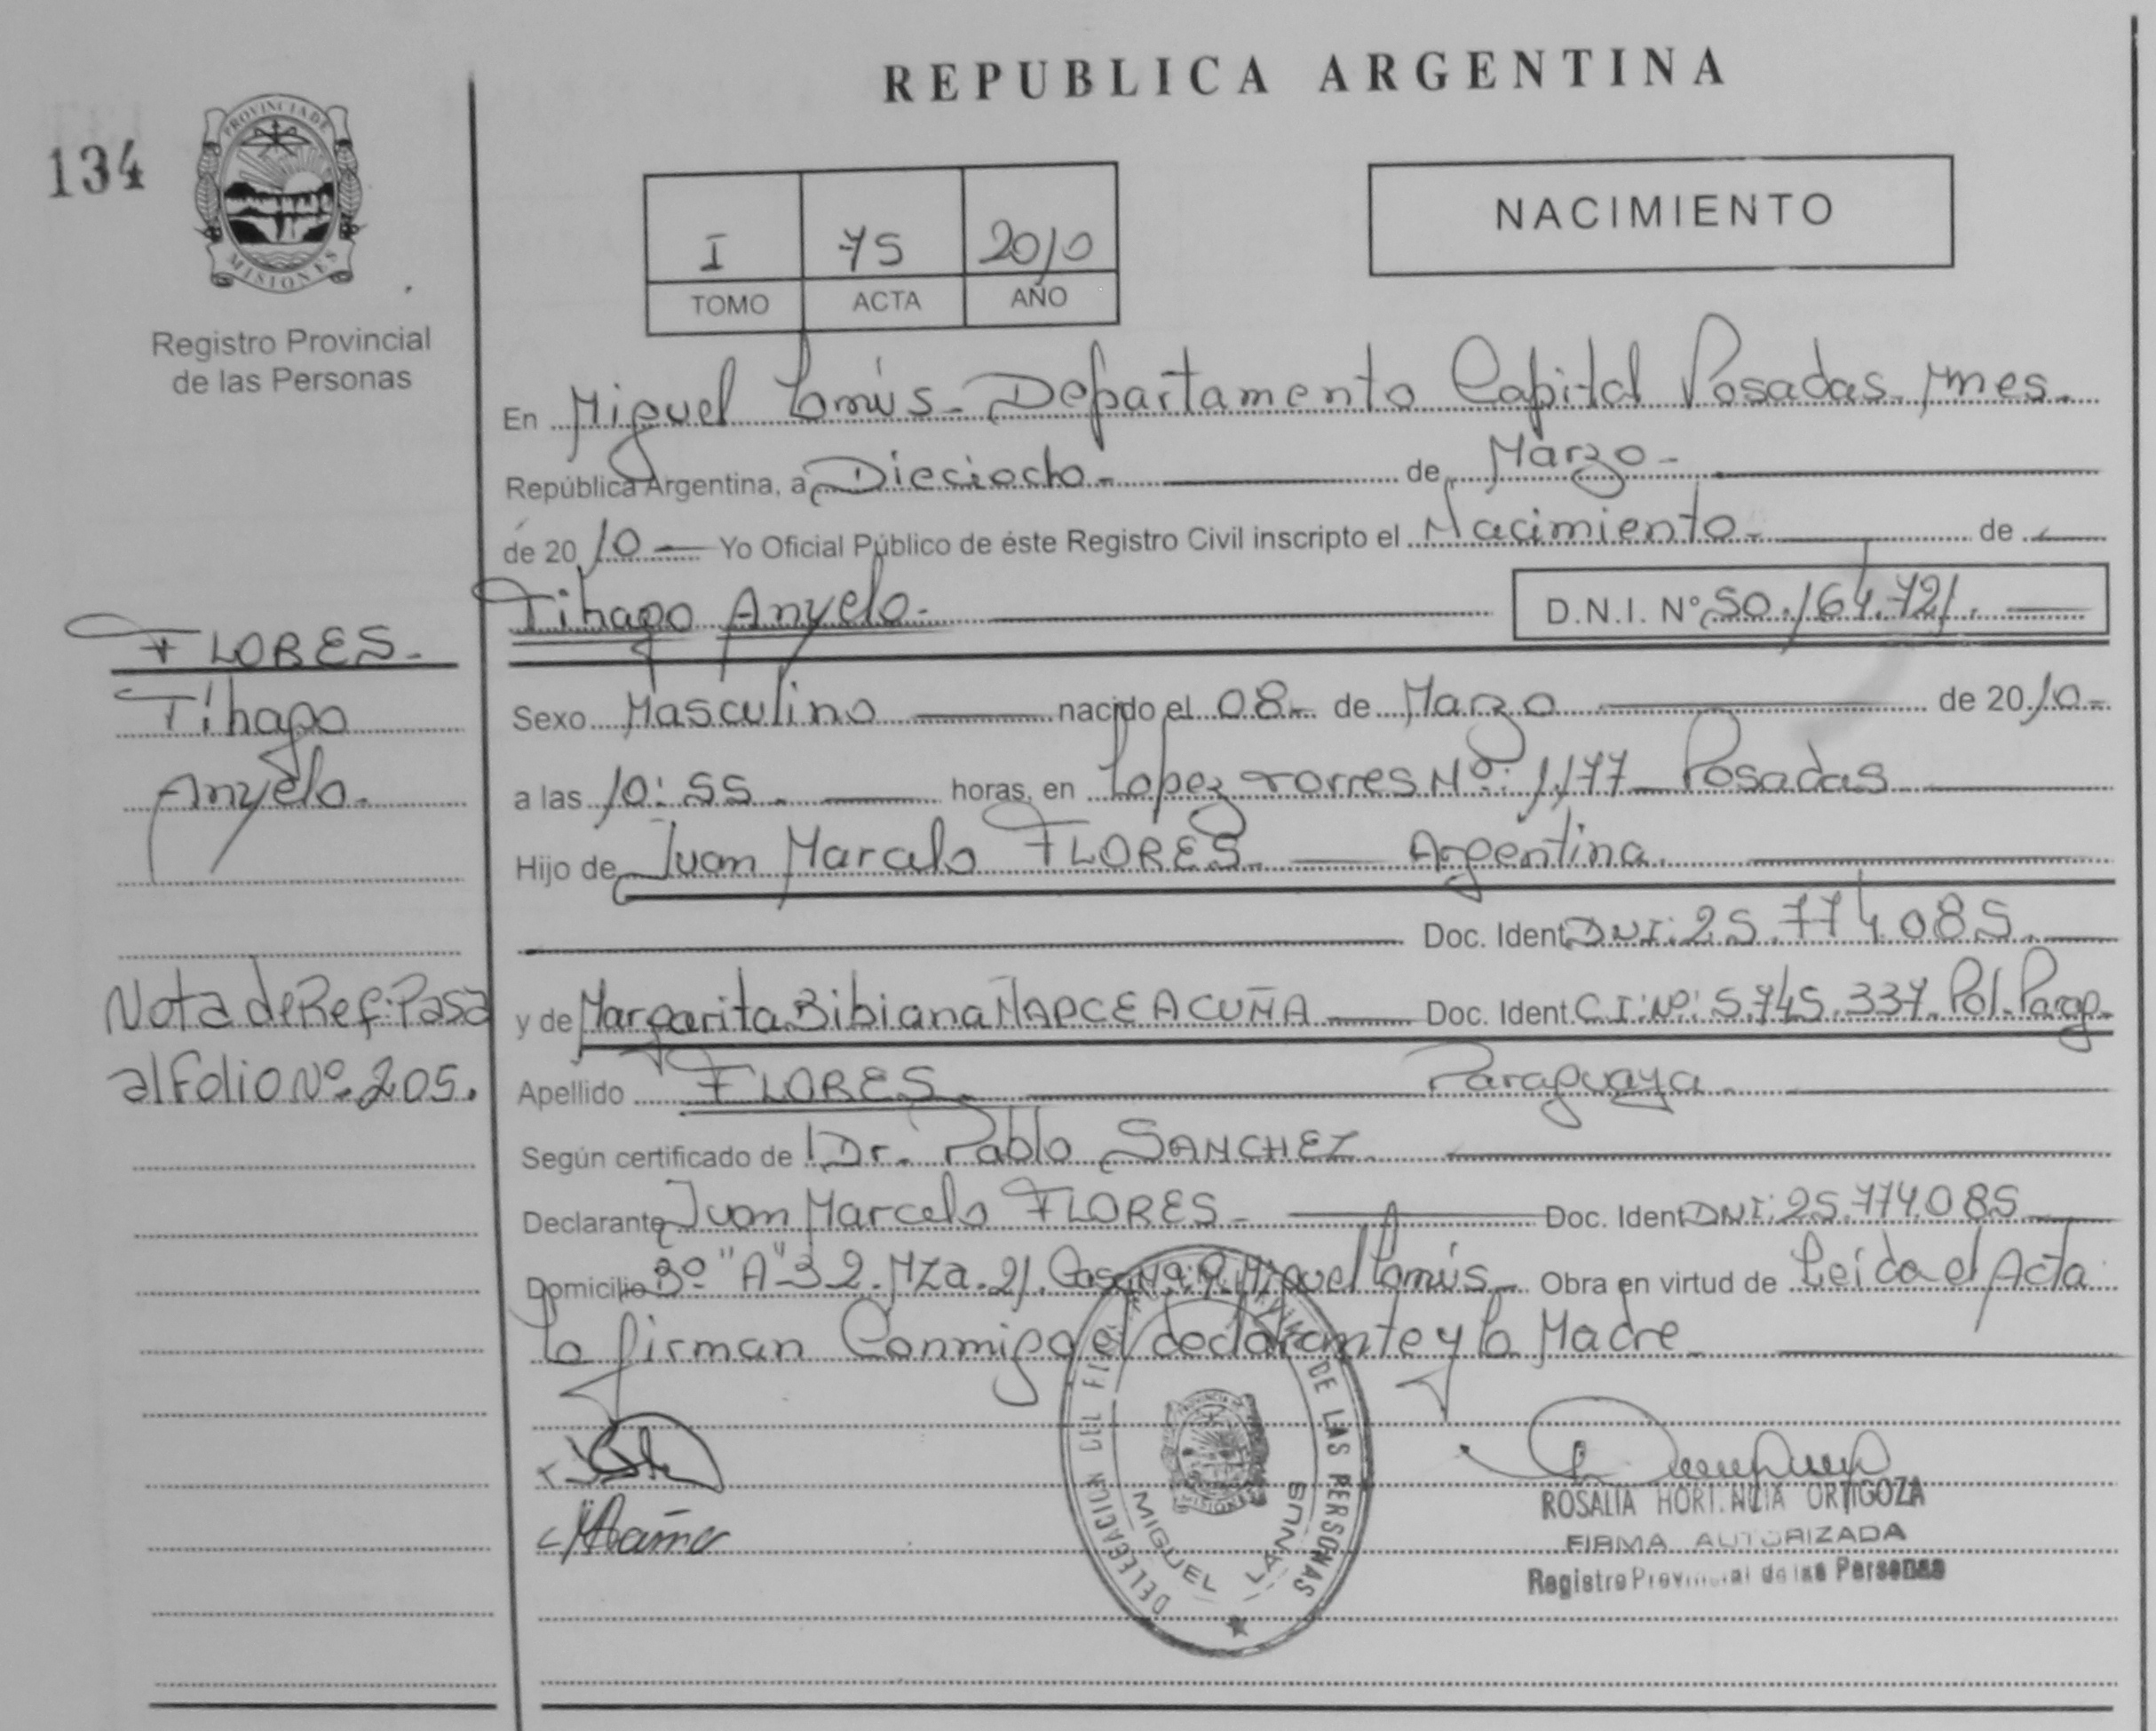 REPUBLICA ARGENTINA
134
PROVINCIA DE
MISIONES
Registro Provincial
de las Personas
I 75 2010
TOMO ACTA AÑO
NACIMIENTO
En Miguel Lanús - Departamento Capital Posadas Mnes.
República Argentina, a Dieciocho - de Marzo -
de 2010 - Yo Oficial Público de éste Registro Civil inscripto el Nacimiento - de
Tihago Anyelo. D.N.I. Nº 50.164.721.
FLORES.
Tihago
Anyelo.
Sexo Masculino nacido el 08 - de Marzo de 2010 -
a las 10:55. horas, en Lopez Torres Nº: 1177 - Posadas
Hijo de Juan Marcelo FLORES - Argentina.
Doc. Ident. DNI: 25.774.085.
y de Margarita Bibiana ÑARCE ACUÑA Doc. Ident. C.I: Nº: 5.745.337. Pol. Parag.
Nota de Ref: Pasa
al Folio Nº 205.
Apellido FLORES. Paraguaya.
Según certificado de Dr. Pablo SANCHEZ.
Declarante Juan Marcelo FLORES - Doc. Ident. DNI: 25.774.085
Domicilio Bº "A" 3 2. Mza. 21. Casa Nº 9. Miguel Lanús - Obra en virtud de Leída el Acta
la firman Conmigo el declarante y la Madre
DELEGACION DEL DE LAS PERSONAS
MIGUEL LANUS
ROSALIA HORTENCIA ORTIGOZA
FIRMA AUTORIZADA
Registro Provincial de las Personas